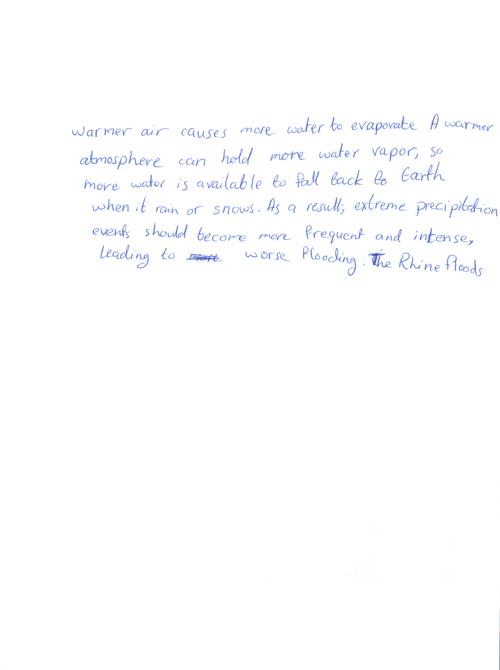 warmer air causes more water to evaporate A warmer
atmosphere can hold more water vapor, so
more water is available to fall back to Earth
when it rain or snows. As a result, extreme precipitation
events should become more frequent and intense,
leading to worse flooding. The Rhine floods